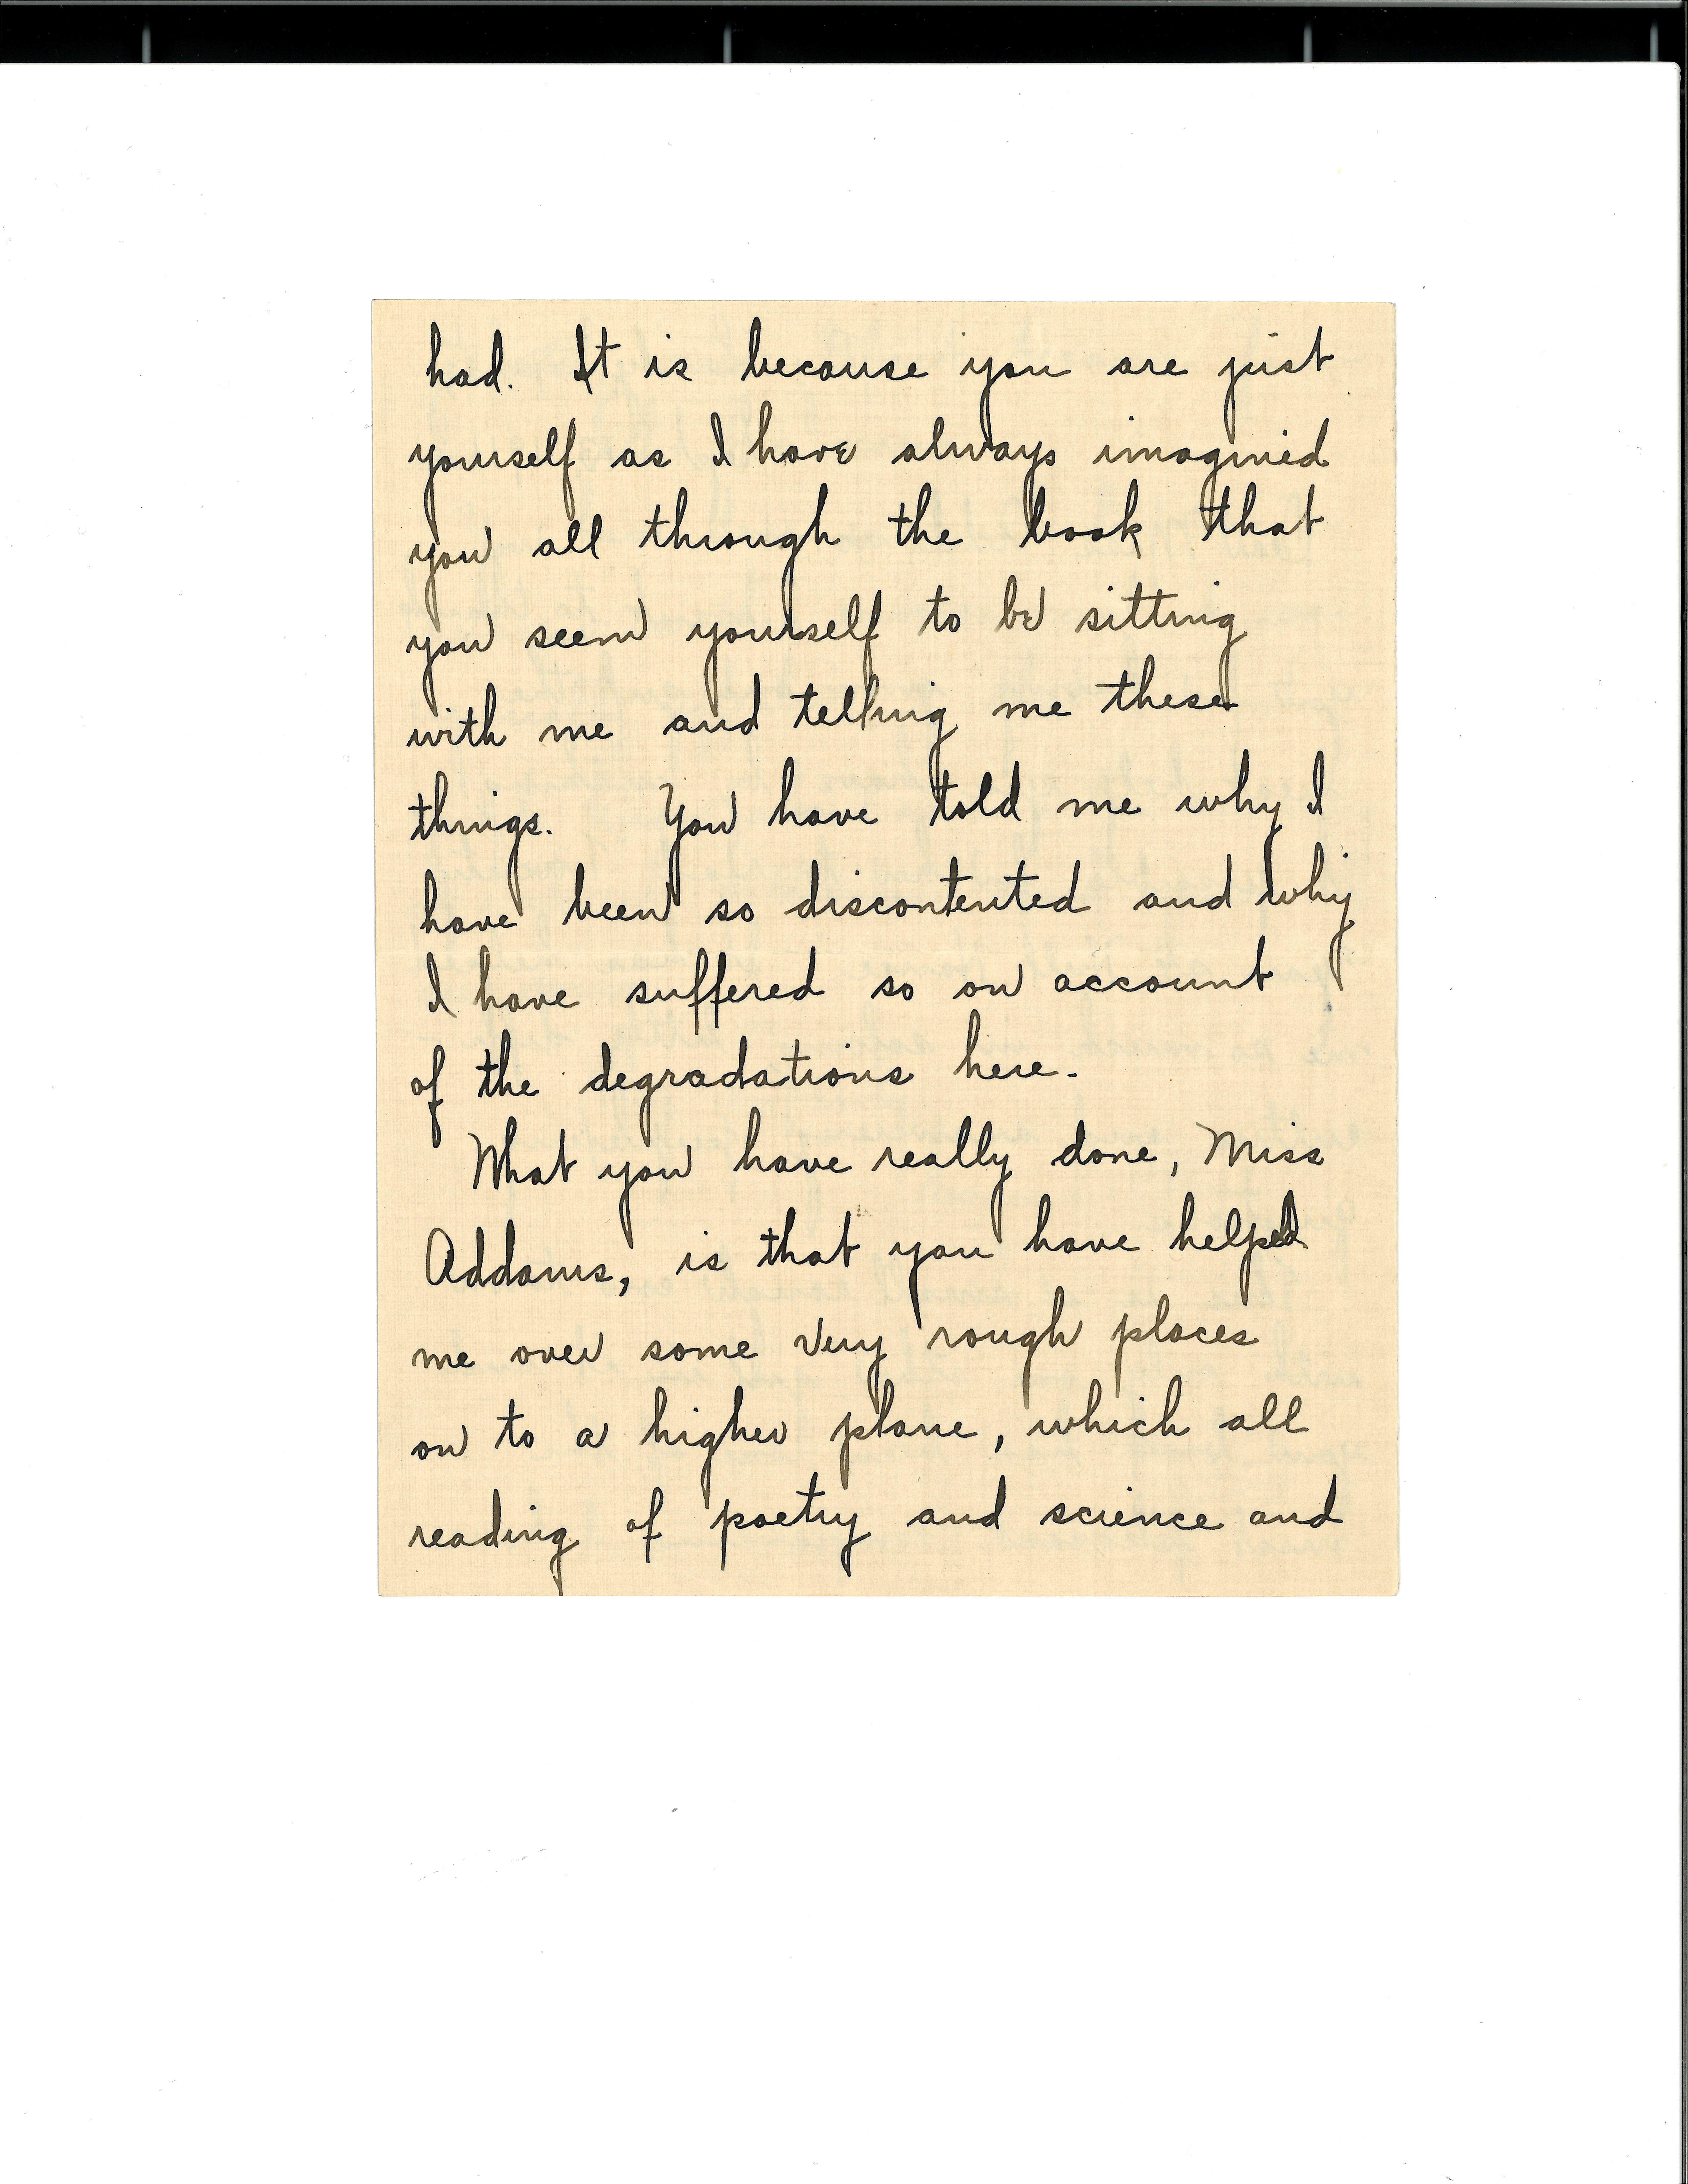 had. It is because you are just
yourself as I have always imagined
you all through the book that
you seem yourself to be sitting
with me and telling me these
things. You have told me why I
have been so discontented and why
I have suffered so on account
of the degradations here.
What you have really done, Miss
Addams, is that you have helped
me over some very rough places
on to a higher plane, which all
reading of poetry and science and